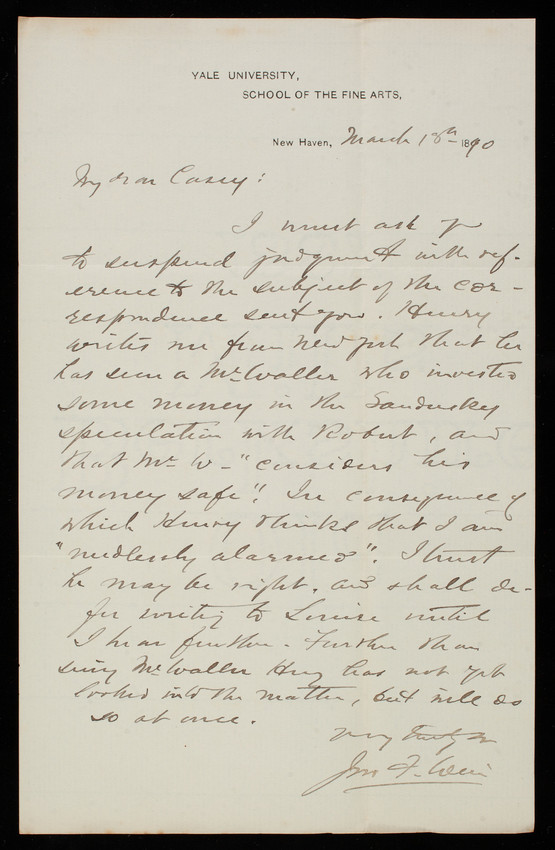 YALE UNIVERSITY,
SCHOOL OF THE FINE ARTS,
New Haven, March 18th 1890
My dear Casey:
I must ask you
to suspend judgment with ref-
erence to the subject of the cor-
respondence sent you. Henry
writes me from New York that he
has seen a Mr. Waller who invested
some money in the Sandusky
speculation with Robert, and
that Mr. W- "considers his
money safe"! In consequence of
which Henry thinks that I am
"needlessly alarmed". I trust
he may be right, and shall de-
fer writing to Louise until
I hear further. Further than
seeing Mr. Waller Henry has not yet
looked into the matter, but will do
so at once.
Very truly yrs
Jno F. Weir